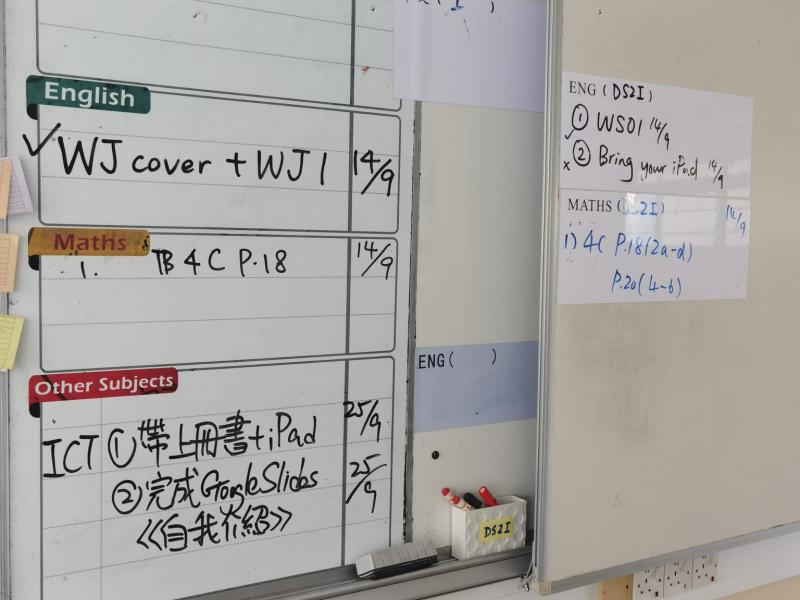 English
✓ WJ cover + WJ 1 14/9
Maths
1. TB 4C P.18 14/9
Other Subjects
ICT ① 帶上冊書+iPad 25/9
② 完成Google Slides 25/9
《自我介紹》
ENG ( )
DS2I
ENG ( DS2I )
① WS01 14/9
② Bring your iPad 14/9
MATHS ( DS2I ) 14/9
1) 4C P.18 (2a-d)
P.20 (4-6)